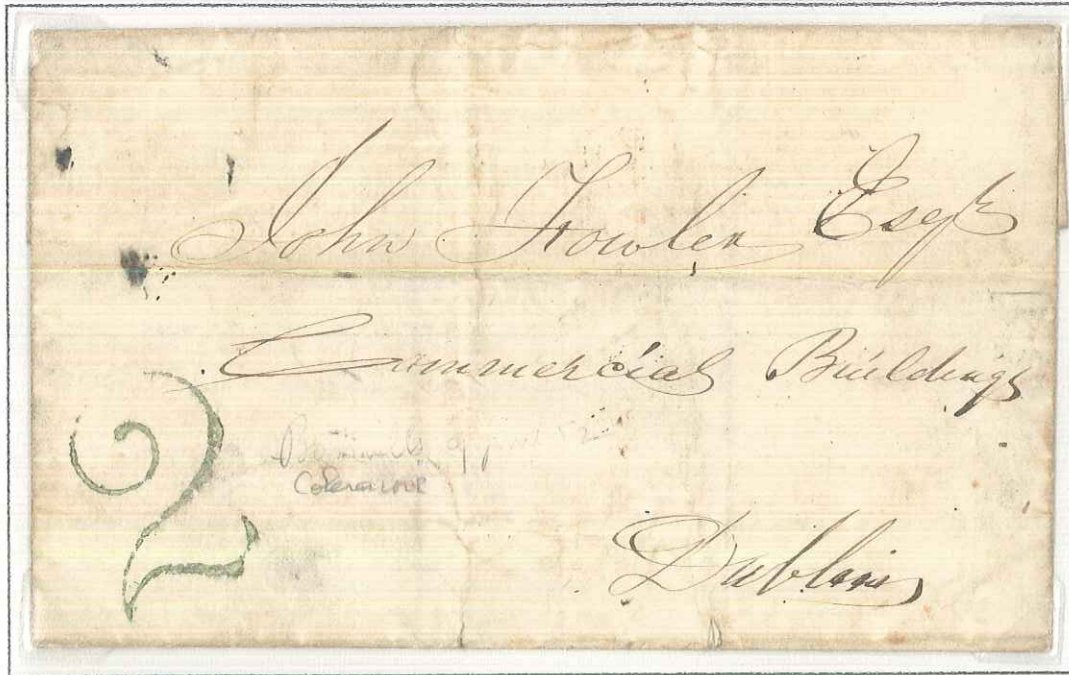 John Fowler Esqr
Commercial Buildings
2
Coleraine
Dublin